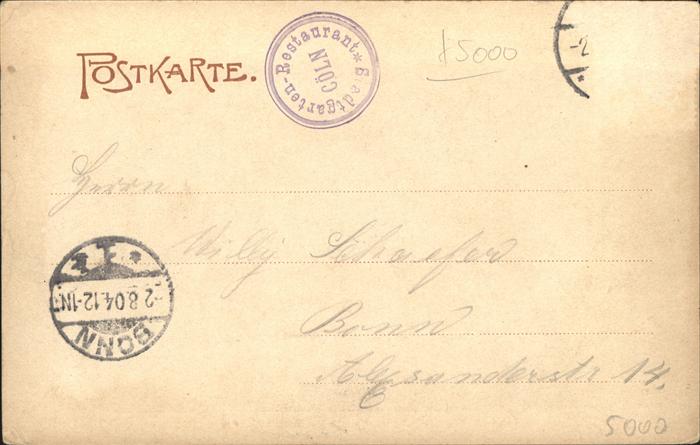 POSTKARTE.
Stadtgarten-Restaurant *
CÖLN
£5000
-2
*
Herrn
Willy Schaefer
Bonn
Alexanderstr 14.
* 1 z
-2 8.04.12-1N.
BONN
5000